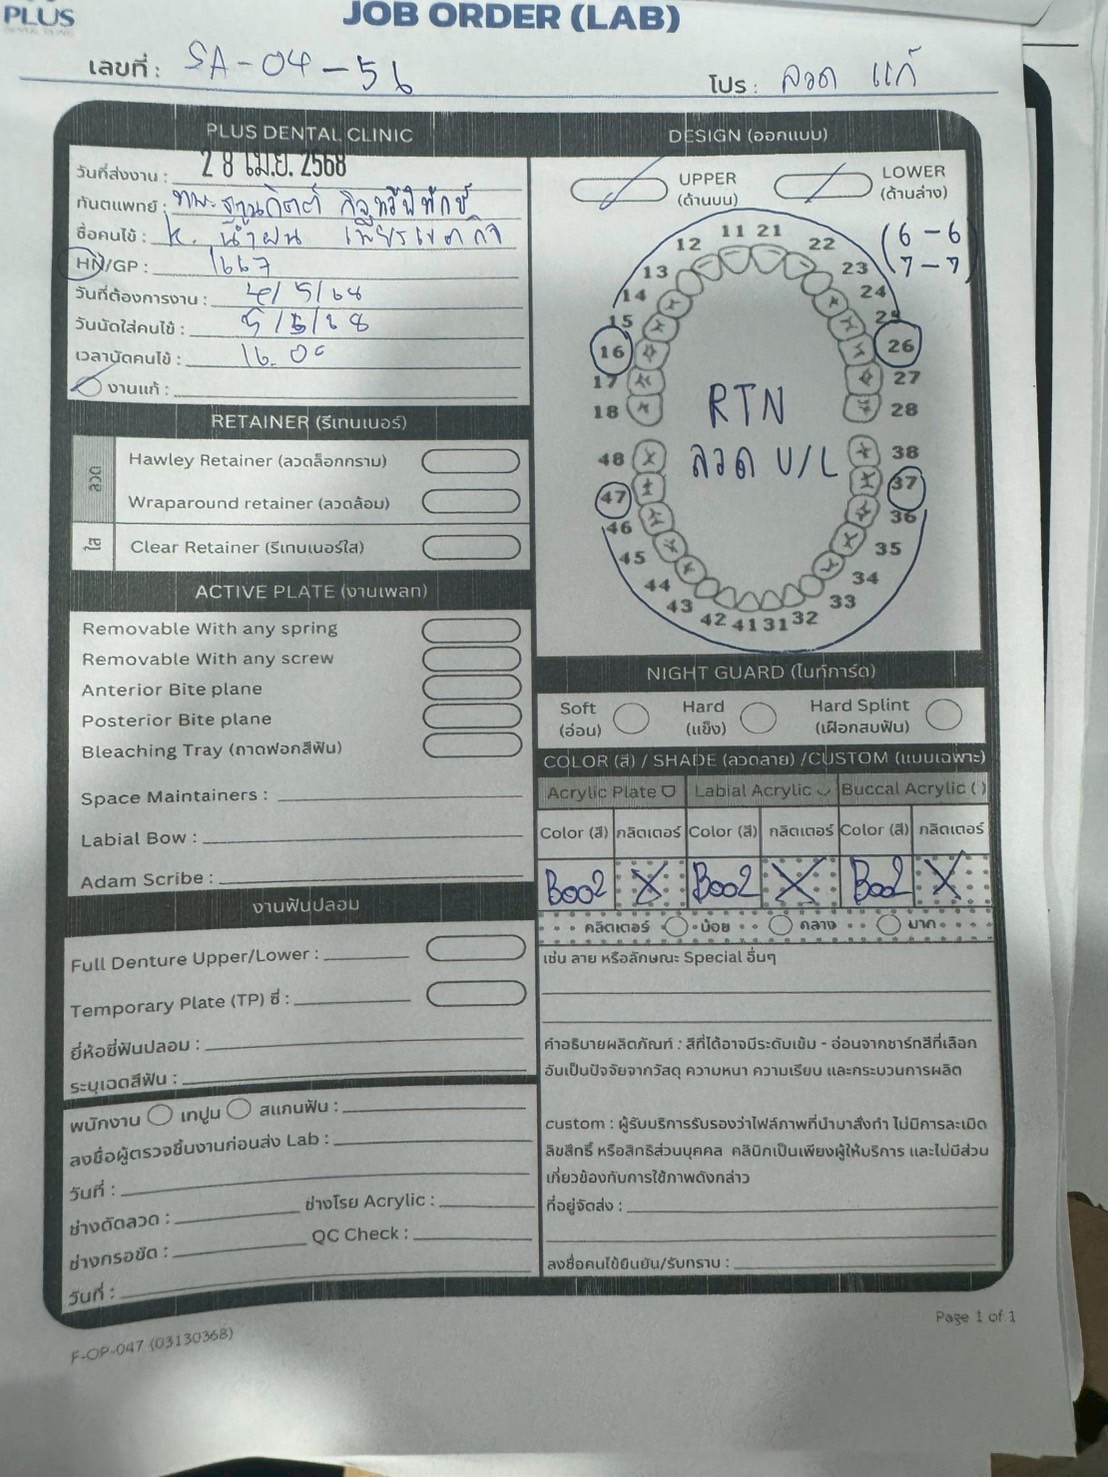 PLUS
JOB ORDER (LAB)
เลขที่ : SA-04-56
โปร : ลวด แก้
PLUS DENTAL CLINIC
วันที่ส่งงาน : 28 เม.ย. 2568
ทันตแพทย์ :
ชื่อคนไข้ : K. น้ำฝน
HN/GP : 1667
วันที่ต้องการงาน : 4/5/68
วันนัดใส่คนไข้ : 5/5/68
เวลานัดคนไข้ : 16.00
งานแก้ :
RETAINER (รีเทนเนอร์)
ลวด
Hawley Retainer (ลวดล็อกกราม)
Wraparound retainer (ลวดล้อม)
ใส
Clear Retainer (รีเทนเนอร์ใส)
ACTIVE PLATE (งานเพลท)
Removable With any spring
Removable With any screw
Anterior Bite plane
Posterior Bite plane
Bleaching Tray (ถาดฟอกสีฟัน)
Space Maintainers :
Labial Bow :
Adam Scribe :
งานฟันปลอม
Full Denture Upper/Lower :
Temporary Plate (TP) ซี่ :
ยี่ห้อซี่ฟันปลอม :
ระบุเฉดสีฟัน :
พนักงาน เทปูน สแกนฟัน :
ลงชื่อผู้ตรวจชิ้นงานก่อนส่ง Lab :
วันที่ :
ช่างดัดลวด : ช่างโรย Acrylic :
ช่างกรอขัด : QC Check :
วันที่ :
DESIGN (ออกแบบ)
UPPER (ด้านบน)
LOWER (ด้านล่าง)
(6 - 6
7 - 7)
11 21
12 22
13 23
14 24
15 25
16 26
17 27
18 28
RTN
ลวด U/L
48 38
47 37
46 36
45 35
44 34
43 33
42 41 31 32
NIGHT GUARD (ไนท์การ์ด)
Soft (อ่อน)
Hard (แข็ง)
Hard Splint (เฝือกสบฟัน)
COLOR (สี) / SHADE (ลวดลาย) /CUSTOM (แบบเฉพาะ)
Acrylic Plate Labial Acrylic Buccal Acrylic ( )
Color (สี) กลิตเตอร์ Color (สี) กลิตเตอร์ Color (สี) กลิตเตอร์
B002 X B002 X B002 X
กลิตเตอร์ น้อย กลาง มาก
เช่น ลาย หรือลักษณะ Special อื่นๆ
คำอธิบายผลิตภัณฑ์ : สีที่ได้อาจมีระดับเข้ม - อ่อนจากชาร์ทสีที่เลือก
อันเป็นปัจจัยจากวัสดุ ความหนา ความเรียบ และกระบวนการผลิต
custom : ผู้รับบริการรับรองว่าไฟล์ภาพที่นำมาสั่งทำ ไม่มีการละเมิด
ลิขสิทธิ์ หรือสิทธิส่วนบุคคล คลินิกเป็นเพียงผู้ให้บริการ และไม่มีส่วน
เกี่ยวข้องกับการใช้ภาพดังกล่าว
ที่อยู่จัดส่ง :
ลงชื่อคนไข้ยืนยัน/รับทราบ :
Page 1 of 1
F-OP-047 (03130368)